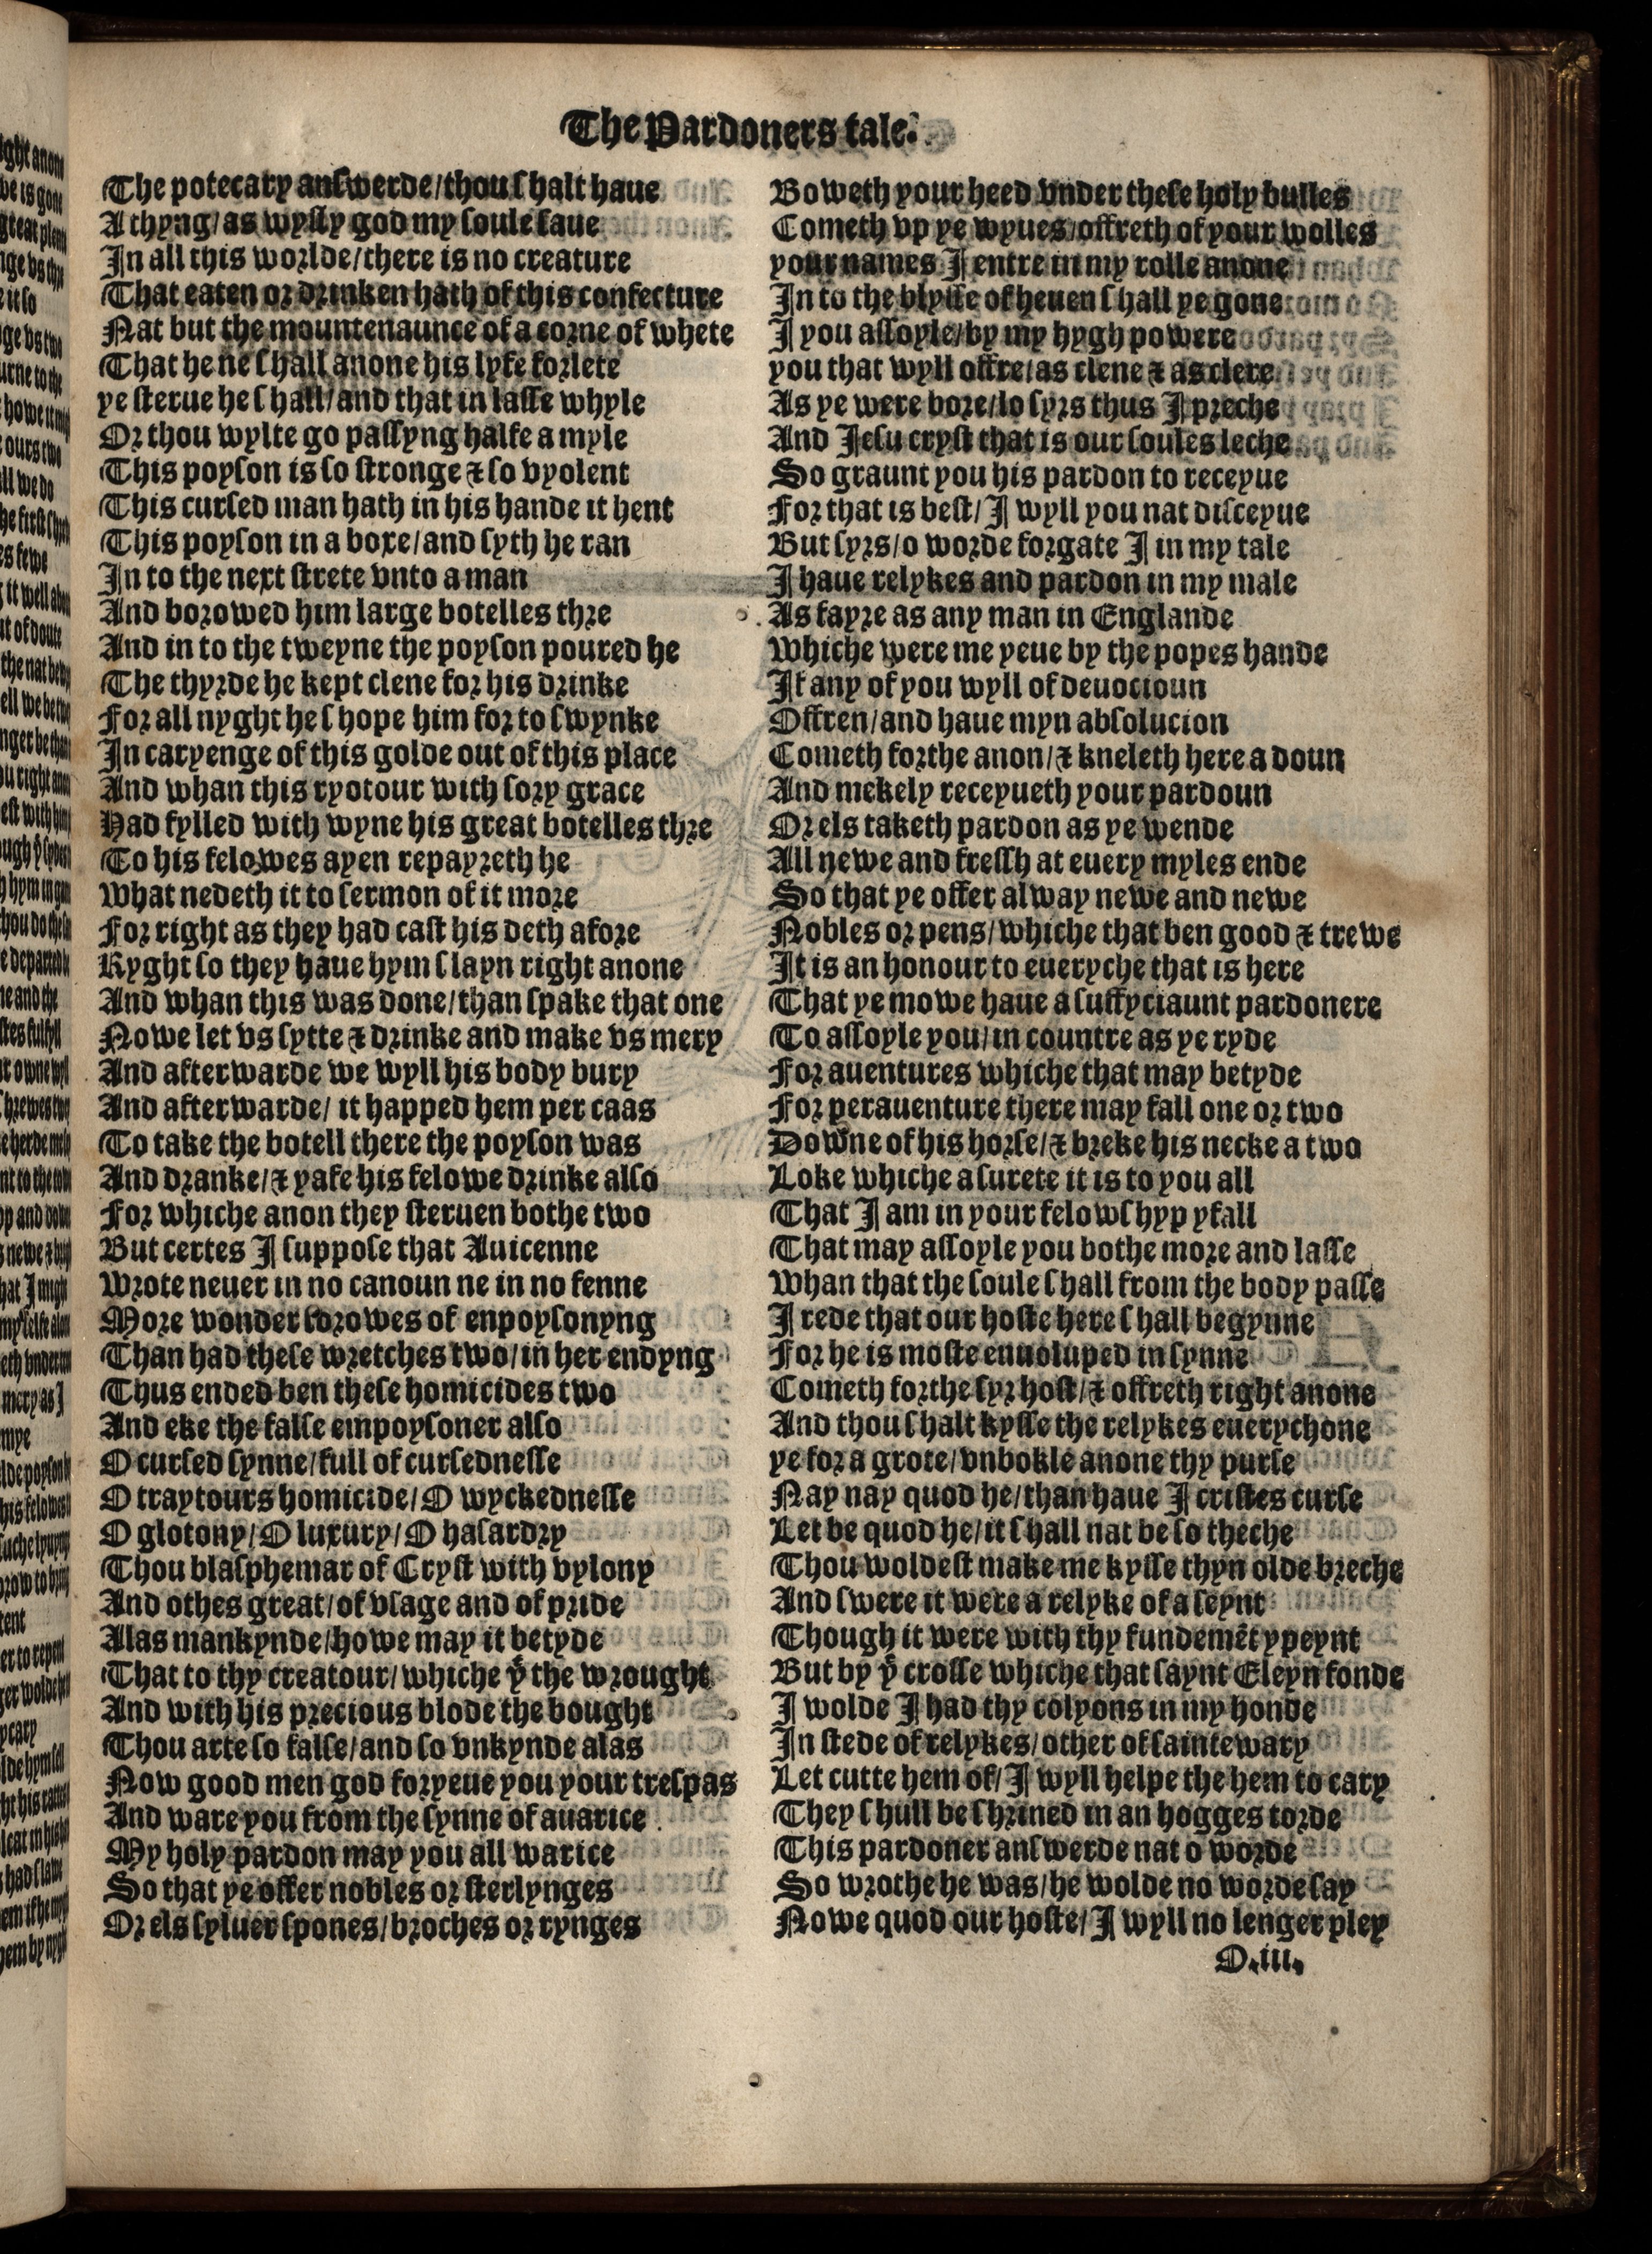 The Pardoners tale.
The potecary answerde/thou shalt haue
A thyng/as wysly god my soule saue
In all this worlde/there is no creature
That eaten or drinken hath of this confecture
Nat but the mountenaunce of a corne of whete
That he ne shall anone his lyfe forlete
ye sterue he shall/and that in lasse whyle
Or thou wylte go passyng halfe a myle
This poyson is so stronge & so vyolent
This cursed man hath in his hande it hent
This poyson in a boxe/and syth he ran
In to the next strete vnto a man
And borowed him large botelles thre
And in to the tweyne the poyson poured he
The thyrde he kept clene for his drinke
For all nyght he shope him for to swynke
In caryenge of this golde out of this place
And whan this ryotour with sory grace
Had fylled with wyne his great botelles thre
To his felowes ayen repayreth he
What nedeth it to sermon of it more
For right as they had cast his deth afore
Ryght so they haue hym slayn right anone
And whan this was done/than spake that one
Nowe let vs sytte & drinke and make vs mery
And afterwarde we wyll his body bury
And afterwarde/ it happed hem per caas
To take the botell there the poyson was
And dranke/& yafe his felowe drinke also
For whiche anon they steruen bothe two
But certes I suppose that Auicenne
Wrote neuer in no canoun ne in no fenne
More wonder sorowes of enpoysonyng
Than had these wretches two/in her endyng
Thus ended ben these homicides two
And eke the false empoysoner also
O cursed synne/full of cursednesse
O traytours homicide/O wyckednesse
O glotony/O luxury/O hasardry
Thou blasphemar of Cryst with vylony
And othes great/of vsage and of pride
Alas mankynde/howe may it betyde
That to thy creatour/whiche yͭ the wrought
And with his precious blode the bought
Thou arte so false/and so vnkynde alas
Now good men god foryeue you your trespas
And ware you from the synne of auarice
My holy pardon may you all warice
So that ye offer nobles or sterlynges
Or els syluer spones/broches or rynges
Boweth your heed vnder these holy bulles
Cometh vp ye wyues/offreth of your wolles
your names I entre in my rolle anone
In to the blysse of heuen shall ye gone
I you assoyle/by my hygh powere
you that wyll offre/as clene & as clere
As ye were bore/lo syrs thus I preche
And Jesu cryst that is our soules leche
So graunt you his pardon to receyue
For that is best/I wyll you nat disceyue
But syrs/o worde forgate I in my tale
I haue relykes and pardon in my male
As fayre as any man in Englande
Whiche were me yeue by the popes hande
If any of you wyll of deuocioun
Offren/and haue myn absolucion
Cometh forthe anon/& kneleth here a doun
And mekely receyueth your pardoun
Or els taketh pardon as ye wende
All newe and fressh at euery myles ende
So that ye offer alway newe and newe
Nobles or pens/whiche that ben good & trewe
It is an honour to eueryche that is here
That ye mowe haue a suffyciaunt pardonere
To assoyle you/in countre as ye ryde
For auentures whiche that may betyde
For perauenture there may fall one or two
Downe of his horse/& breke his necke a two
Loke whiche a surete it is to you all
That I am in your felowshyp yfall
That may assoyle you bothe more and lasse
Whan that the soule shall from the body passe
I rede that our hoste here shall begynne
For he is moste enuoluped in synne
Cometh forthe syr host/& offreth right anone
And thou shalt kysse the relykes euerychone
ye for a grote/vnbokle anone thy purse
Nay nay quod he/than haue I cristes curse
Let be quod he/it shall nat be so theche
Thou woldest make me kysse thyn olde breche
And swere it were a relyke of a seynt
Though it were with thy fundemēt ypeynt
But by yͭ crosse whiche that saynt Eleyn fonde
I wolde I had thy colyons in my honde
In stede of relykes/other of saintewary
Let cutte hem of/I wyll helpe the hem to cary
They shull be shrined in an hogges torde
This pardoner answerde nat o worde
So wrothe he was/he wolde no worde say
Nowe quod our hoste/I wyll no lenger pley
O.iii.